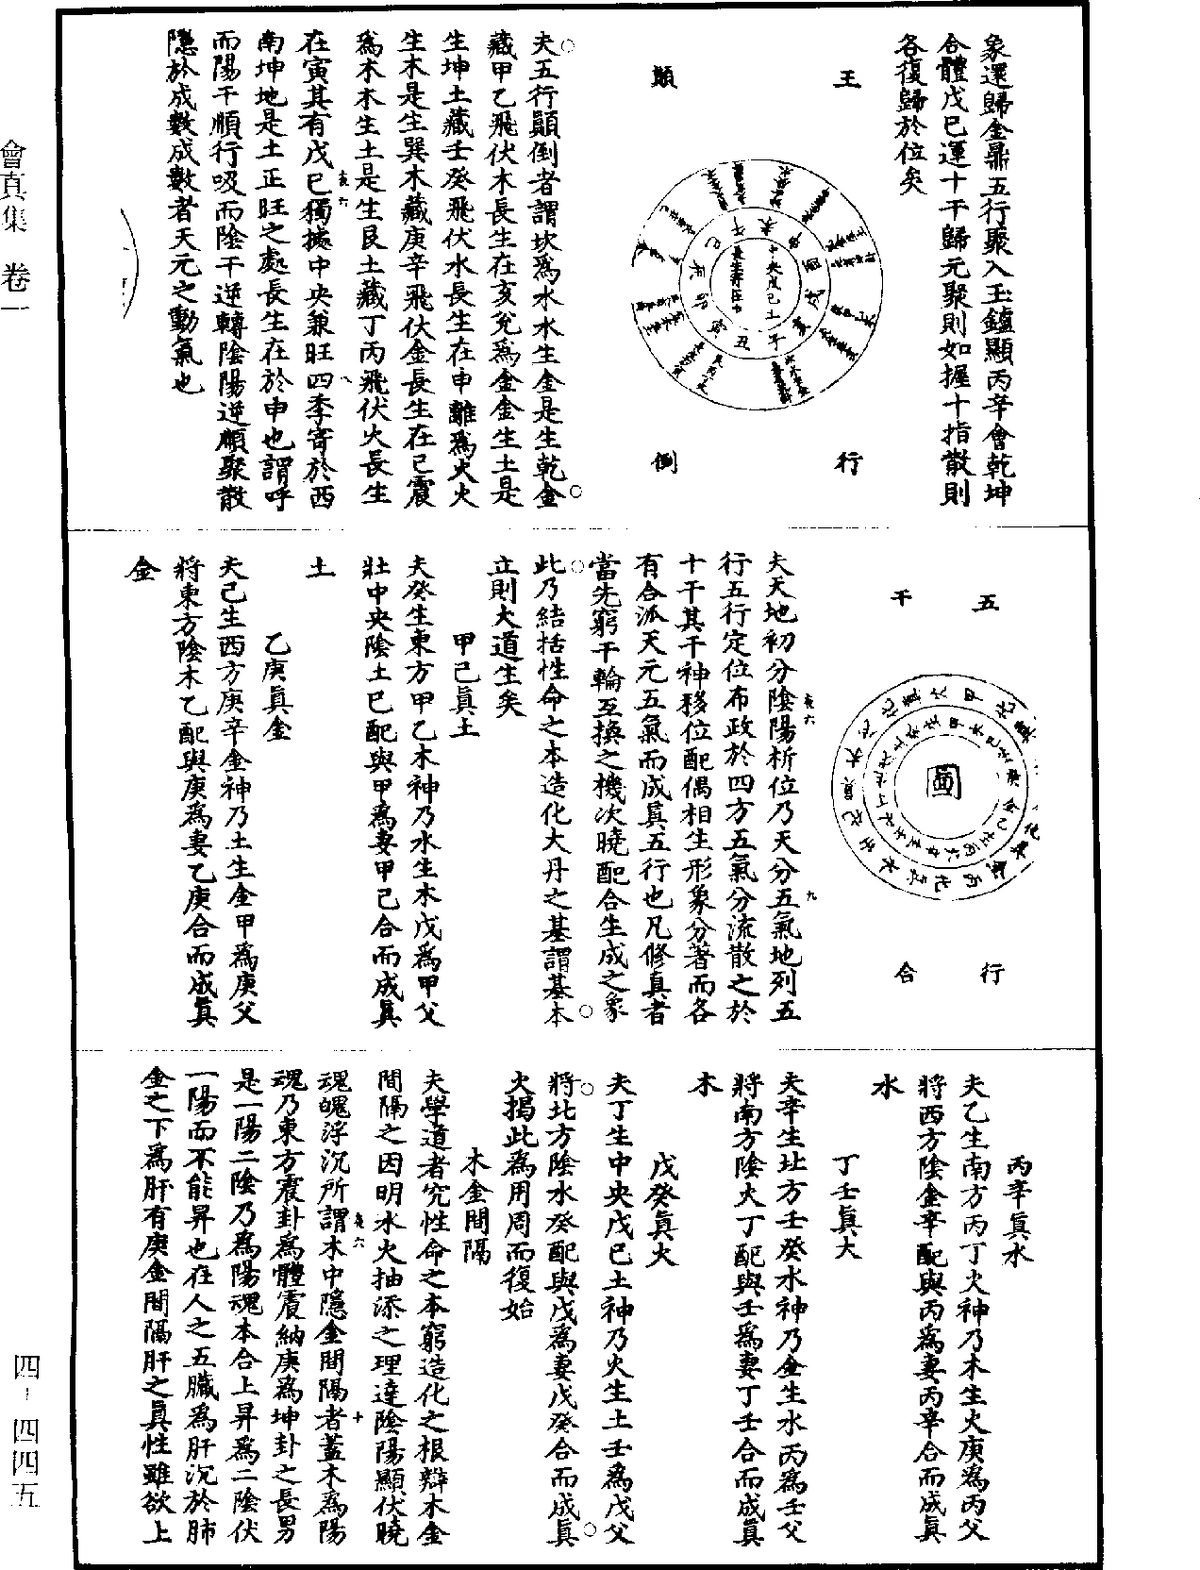 象還歸金鼎五行聚入玉鑪顯丙辛會乾坤
合體戊巳運十干歸元聚則如握十指散則
各復歸於位矣
王
行
顛
倒
中央戊己土
夫五行顛倒者謂坎爲水水生金是生乾金
藏甲乙飛伏木長生在亥兌爲金金生土是
生坤土藏壬癸飛伏水長生在申離爲火火
生木是生巽木藏庚辛飛伏金長生在巳震
爲木木生土是生艮土藏丁丙飛伏火長生
在寅其有戊巳獨據中央兼旺四季寄於西
南坤地是土正旺之處長生在於申也謂呼
而陽干順行吸而陰干逆轉陰陽逆順聚散
隱於成數成數者天元之動氣也
五
行
干
合
圖
夫天地初分陰陽析位乃天分五氣地列五
行五行定位布政於四方五氣分流散之於
十干其干神移位配偶相生形象分著而各
有合派天元五氣而成真五行也凡修真者
當先窮干輪互換之機次曉配合生成之象
此乃結括性命之本造化大丹之基謂基本
立則大道生矣
甲己眞土
夫癸生東方甲乙木神乃水生木戊爲甲父
壯中央陰土巳配與甲爲妻甲己合而成眞
土
乙庚眞金
夫己生西方庚辛金神乃土生金甲爲庚父
將東方陰木乙配與庚爲妻乙庚合而成眞
金
丙辛眞水
夫乙生南方丙丁火神乃木生火庚爲丙父
將西方陰金辛配與丙爲妻丙辛合而成眞
水
丁壬眞木
夫辛生北方壬癸水神乃金生水丙爲壬父
將南方陰火丁配與壬爲妻丁壬合而成眞
木
戊癸眞火
夫丁生中央戊巳土神乃火生土壬爲戊父
將北方陰水癸配與戊爲妻戊癸合而成眞
火揭此爲用周而復始
木金間隔
夫學道者究性命之本窮造化之根辯木金
間隔之因明水火抽添之理達陰陽顯伏曉
魂魄浮沉所謂木中隱金間隔者蓋木爲陽
魂乃東方震卦爲體震納庚爲坤卦之長男
是一陽二陰乃爲陽魂本合上昇爲二陰伏
一陽而不能昇也在人之五臟爲肝沉於肺
金之下爲肝有庚金間隔肝之眞性雖欲上
會真集　卷一
四-四四五